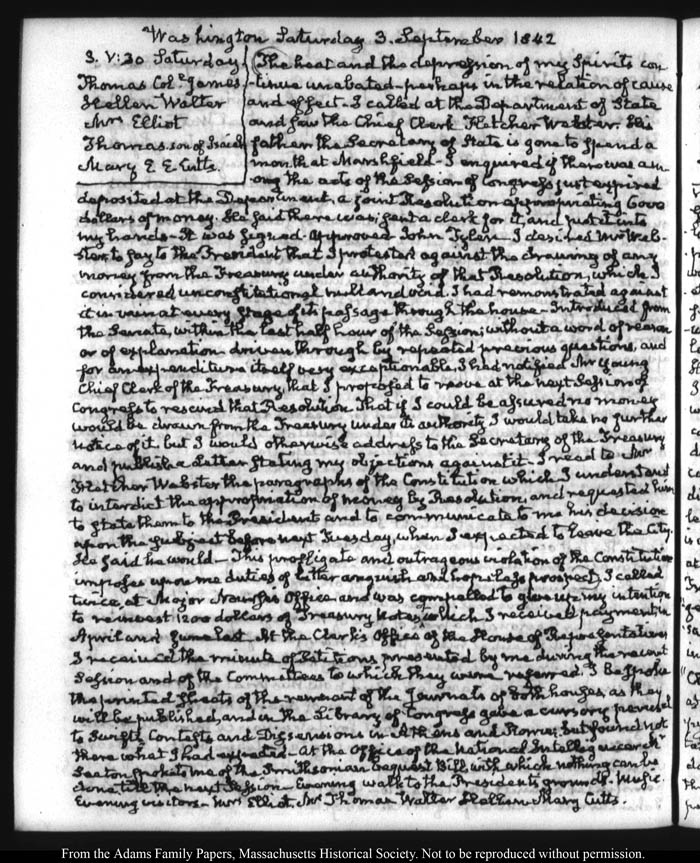 Washington Saturday 3. September 1842
3. V:30 Saturday
Thomas Col. James
Hellen Walter
Mrs Elliot
Thomas son of Isaiah
Mary E. E. Cutts.
The heat and the depression of my Spirits con
-tinue unabated - perhaps in the relation of cause
and effect - I called at the Department of State
and saw the Chief Clerk Fletcher Webster. His
father the Secretary of State is gone to spend a
month at Marshfield - I enquired if there was am
ong the acts of the Session of Congress just expired
deposited at the Department, a joint Resolution appropriating 6000
dollars of money. He said there was; sent a clerk for it and put it into
my hands - It was signed. Approved John Tyler - I desired Mr Web-
ster to say to the President that I protested against the drawing of any
money from the Treasury under authority of that Resolution, which I
considered unconstitutional null and void. I had remonstrated against
it in vain at every Stage of its passage through the house - Introduced from
the Senate, within the last half hour of the Session; without a word of reason
or of explanation driven through by repeated previous questions, and
for an expenditure itself very exceptionable, I had notified Mr Young
Chief Clerk of the Treasury, that I proposed to move at the next Session of
Congress to rescind that Resolution That if I could be assured no money
would be drawn from the Treasury under its authority I would take no further
notice of it, but I would otherwise address to the Secretary of the Treasury
and publish a Letter stating my objections against it - I read to Mr
Fletcher Webster the paragraphs of the Constitution which I understand
to interdict the appropriation of money by Resolution, and requested him
to state them to the President and to communicate to me his decision
upon the subject before next Tuesday, when I expected to leave the City.
He said he would - This profligate and outrageous violation of the Constitution
imposes upon me duties of bitter anguish and hopeless prospect, I called
twice, at Major Office and was compelled to give up my intention
to reinvest 1200 dollars of Treasury Notes of which I received payment in
April and June last. At the Clerk's Office of the House of Representatives
I received the minute of Petitions presented by me during the recent
Session and of the Committees to which they were referred. I bespoke
the printed sheets of the remnant of the Journals of both houses, as they
will be published, and in the Library of Congress gave a cursory perusal
to Swift's Contests and Dissensions in Athens and Rome; but found not
there what I had expected - At the Office of the National Intelligencer Mr
Seaton spoke to me of the Smithsonian bequest Bill, with which nothing can be
done till the next Session - Evening walk to the President's grounds. Music.
Evening visitors - Mrs Elliot, Mr Thomas Walter Hellen Mary Cutts.
From the Adams Family Papers, Massachusetts Historical Society. Not to be reproduced without permission.